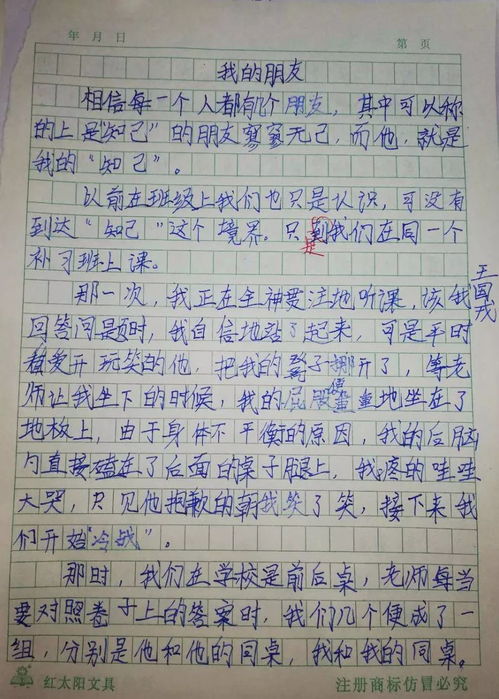 年 月 日
第 页
我的朋友
相信每一个人都有几个朋友，其中可以称
的上是“知己”的朋友寥寥无己，而他，就是
我的“知己”。
以前在班级上我们也只是认识，可没有
到达“知己”这个境界。只到我们在同一个
是
补习班上课。
王国戎
那一次，我正在全神贯注地听课，该我
回答问题时，我自信地站了起来，可是平时
着爱开玩笑的他，把我的凳子挪开了，等老
师让我坐下的时候，我的屁股重重地坐在了
便
地板上，由于身体不平衡的原因，我的后脑
勺直接磕在了后面的桌子腿上，我疼的哇哇
大哭，只见他抱歉的朝我笑了笑，接下来我
们开始“冷战”。
那时，我们在学校是前后桌，老师每当
要对照卷子上的答案时，我们几个便成了一
组，分别是他和他的同桌，我和我的同桌。
红太阳文具
注册商标仿冒必究